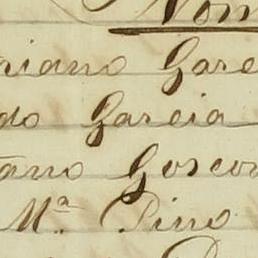 Nom
riano Garc
do Garcia
tano Goscon
Mª. Pino